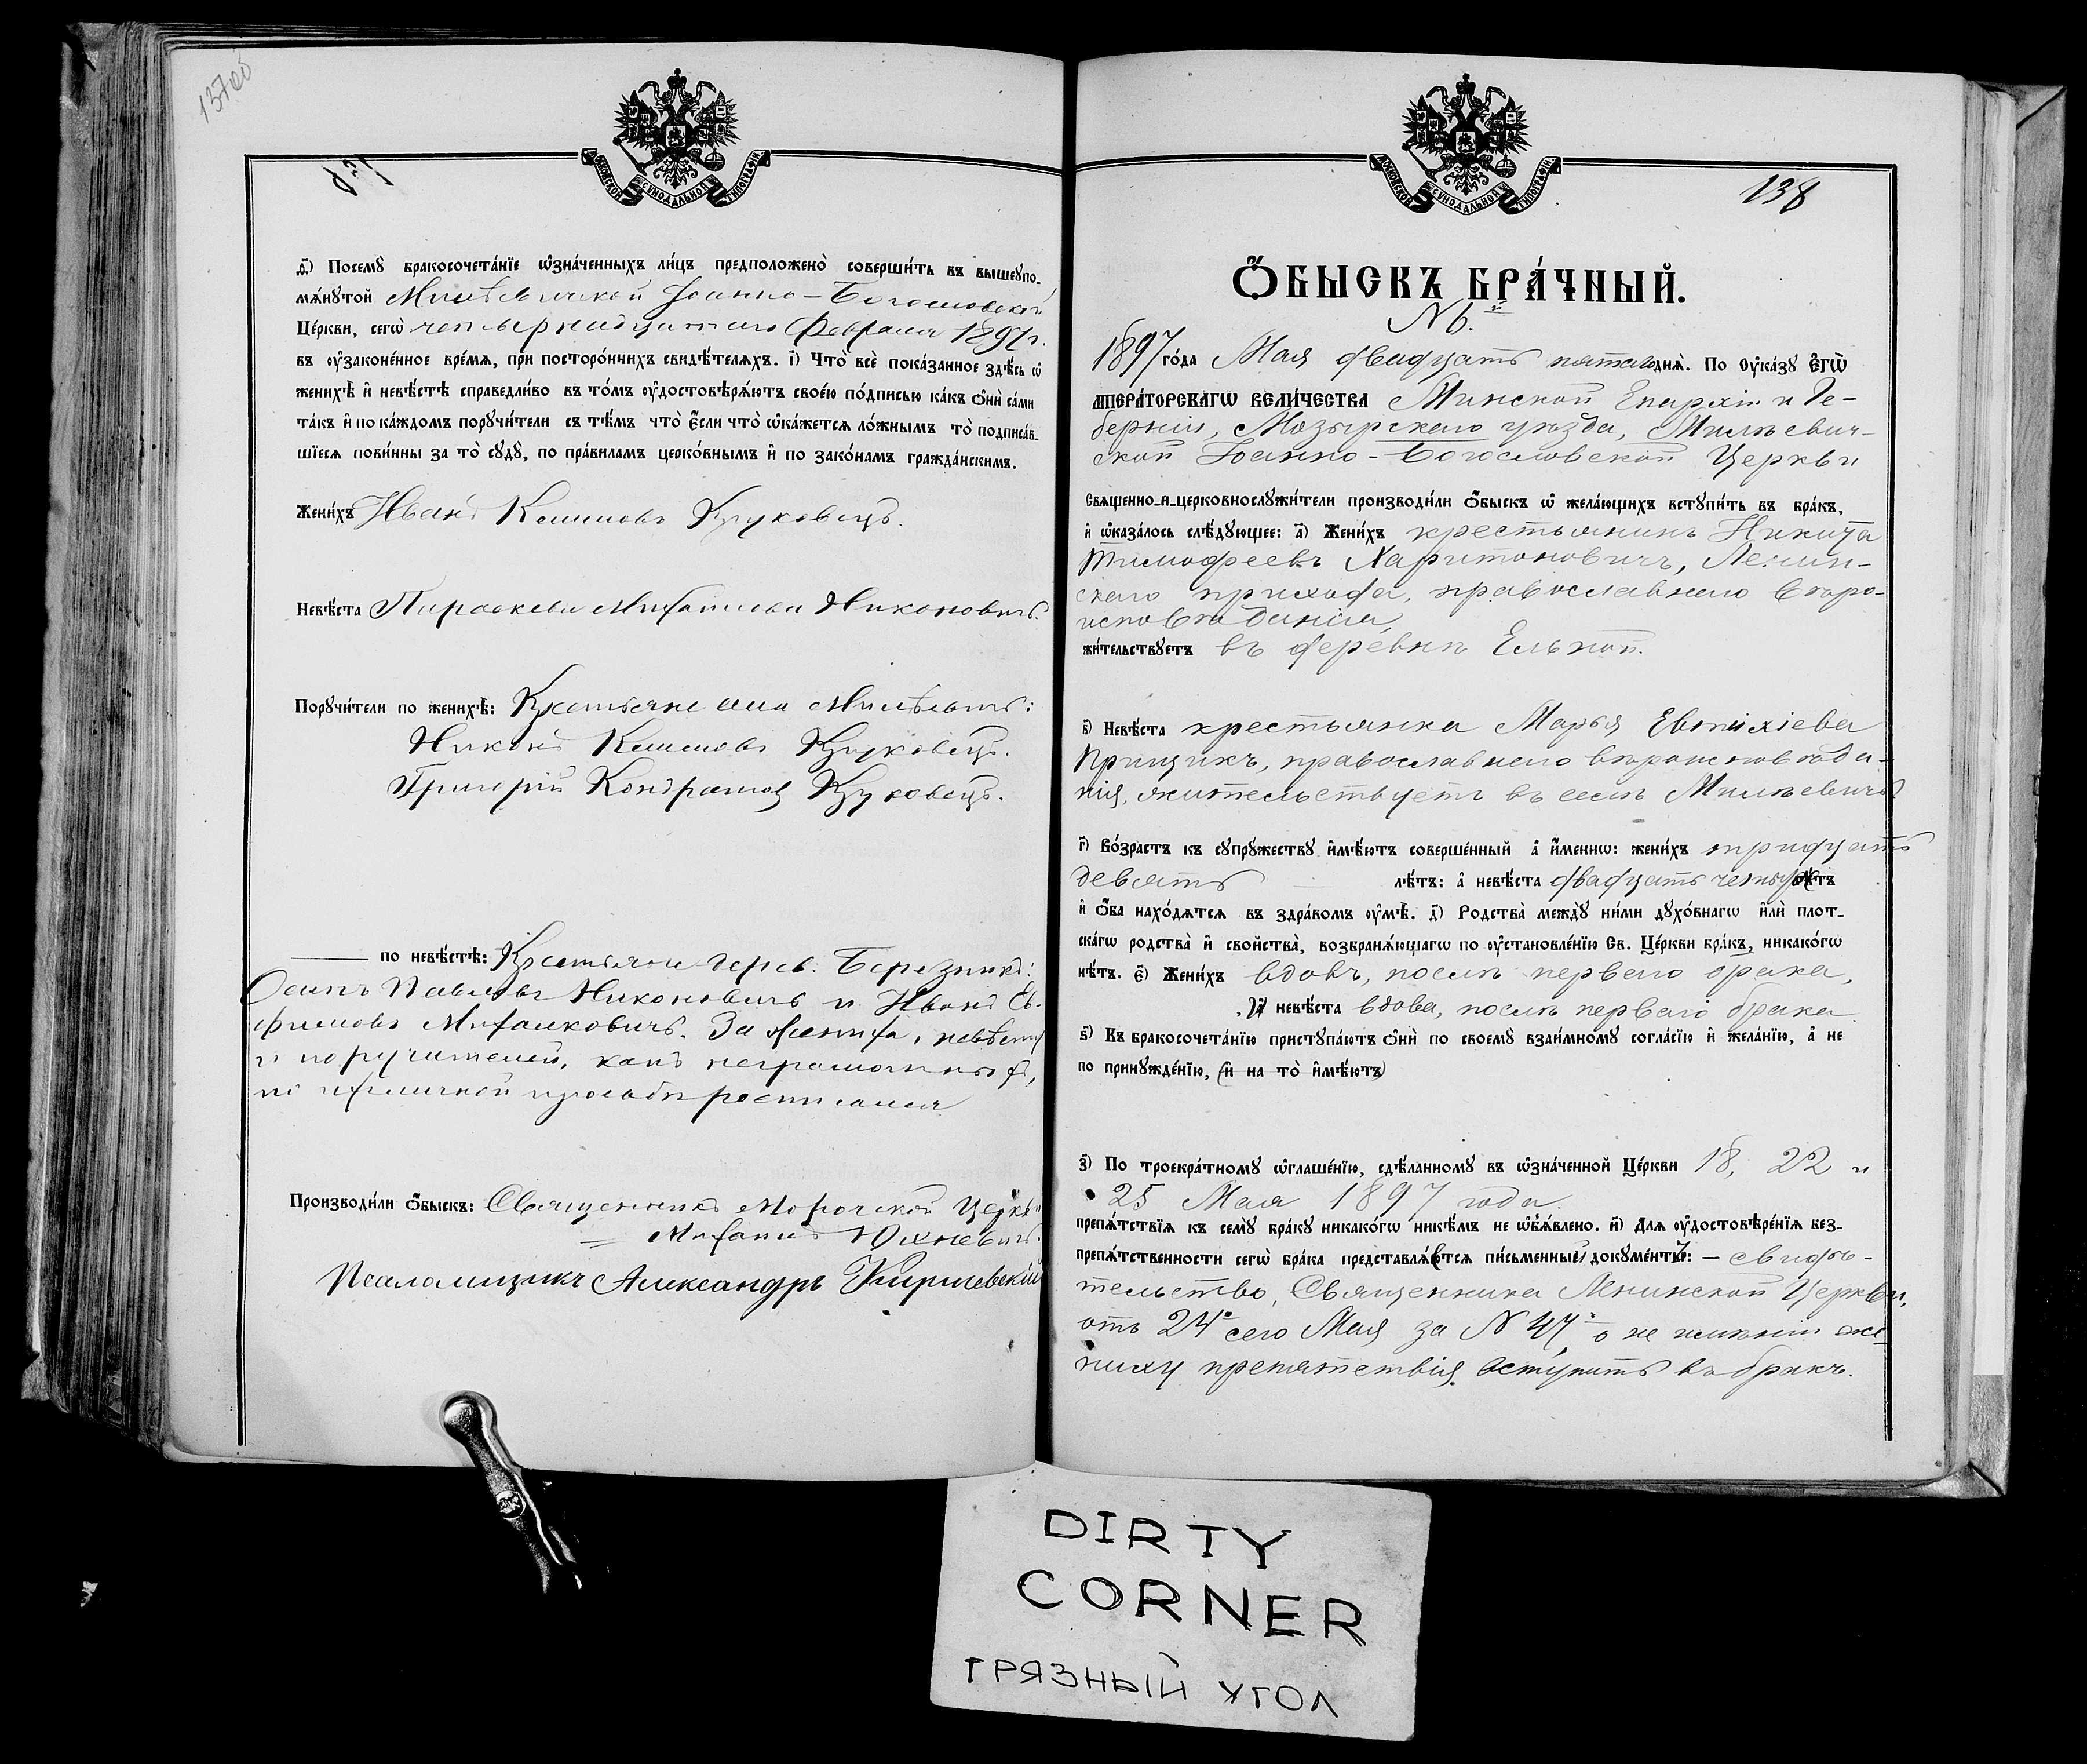 137об
МОСКОВСКОЙ СѴНОДАЛЬНОЙ ТИПОГРАФІИ
ѳ҃) Посемꙋ̀ бракосочета́нїе ѡ҆зна́ченныхъ ли́цъ предположено̀ соверши́ть въ вышеꙋпо-
мѧ́нꙋтой Милѣвичской Іоанно-Богословской
Це́ркви, сегѡ̀ четырнадцатаго Февраля 1897 г.
въ ᲂу҆зако́ненное вре́мѧ, при посторо́ннихъ свидѣ́телѧхъ. і҃) Что̀ всѐ пока́занное здѣ́сь ѡ҆
женихѣ̀ и҆ невѣ́стѣ справедли́во въ то́мъ ᲂу҆достовѣрѧ́ютъ свое́ю по́дписью ка́къ ѻ҆нѝ са́ми
та́къ и҆ по ка́ждомъ порꙋчи́тели съ тѣ́мъ что̀ є҆́сли что̀ ѡ҆ка́жетсѧ ло́жнымъ то̀ подписа́в-
шїесѧ пови́нны за то̀ сꙋдꙋ̀, по пра́виламъ церко́внымъ и҆ по зако́намъ гражда́нскимъ.
Жени́хъ Иванъ Климовъ Круковецъ.
Невѣ́ста Параскева Михаилова Никоновичъ.
Порꙋчи́тели по женихѣ̀: Крестьяне села Милѣвичъ:
Никонъ Климовъ Круковецъ.
Григорій Кондратовъ Круковецъ.
по невѣ́стѣ: Крестьяне дерев. Березняки:
Осипъ Павловъ Никоновичъ и Иванъ Ев-
фимовъ Михалковичъ. За жениха, невѣсту
и поручителей, какъ неграмотныхъ,
по ихъ личной просьбѣ росписался
Производи́ли ѻ҆́быскъ: Священникъ Морочской Церкви
Михаилъ Юхневичъ.
Псаломщикъ Александръ
МОСКОВСКОЙ СѴНОДАЛЬНОЙ ТИПОГРАФІИ
138
Ѻ҆́БЫСКЪ БРА́ЧНЫЙ.
№ 6.й
1897 го́да Мая двадцать пятаго днѧ̀. По ᲂу҆ка́зꙋ Є҆гѡ̀
И҆мпера́торскагѡ Вели́чества Минской Епархіи и Гу-
берніи, Мозырскаго уѣзда, Милѣвич-
ской Іоанно-Богословской Церкви
Свѧще́нно-и-церковнослꙋжи́тели производи́ли ѻ҆́быскъ ѡ҆ жела́ющихъ встꙋпи́ть въ бра́къ,
и҆ ѡ҆каза́лось слѣ́дꙋющее: а҃) Жени́хъ крестьянинъ Никита
Тимофеевъ Харитоновичъ, Ленин-
скаго прихода, православнаго вѣро-
исповѣданія,
жи́тельствꙋетъ въ деревнѣ Ельной.
в҃) Невѣ́ста крестьянка Марья Евтихіева
Прищикъ, православнаго вѣроисповѣда-
нія, жительствуетъ въ селѣ Милѣвичъ
г҃) Во́зрастъ къ сꙋпрꙋ́жествꙋ и҆мѣ́ютъ соверше́нный а҆ и҆́меннѡ: жени́хъ тридцать
девять лѣ́тъ: а҆ невѣ́ста двадцать четыре лѣ́тъ
и҆ ѻ҆́ба нахо́дѧтсѧ въ здра́вомъ ᲂу҆мѣ̀. д҃) Родства̀ междꙋ̀ ни́ми дꙋхо́внагѡ и҆лѝ плот-
ска́гѡ родства̀ и҆ сво́йства̀, возбранѧ́ющагѡ по ᲂу҆становле́нїю Св. Це́ркви бра́къ, никако́гѡ
нѣ́тъ. є҃) Жени́хъ вдовъ, послѣ перваго брака,
и невѣ́ста вдова, послѣ перваго брака.
ѕ҃) Въ бракосочета́нїю пристꙋпа́ютъ ѻ҆нѝ по своемꙋ̀ взаи́мномꙋ согла́сїю и҆ жела́нїю, а҆ не
по принꙋжде́нїю, (и҆ на то̀ и҆мѣ́ютъ)
з҃) По троекра́тномꙋ ѡ҆глаше́нїю, сдѣ́ланномꙋ въ ѡ҆зна́ченной Це́ркви 18, 22 и
25 Мая 1897 года.
препѧ́тствїѧ къ семꙋ̀ бра́кꙋ никако́гѡ никѣ́мъ не ѡ҆бъѧ́влено. и҃) Длѧ ᲂу҆достовѣре́нїѧ без-
препѧ́тственности сегѡ̀ бра́ка представлѧ́етсѧ пи́сьменный докꙋме́нтъ: – свидѣ-
тельство, Священника Ленинской Церкви,
отъ 24го сего Мая за № 47 о не имѣніи же-
ниху препятствія вступить въ бракъ.
DIRTY
CORNER
ГРЯЗНЫЙ УГОЛ